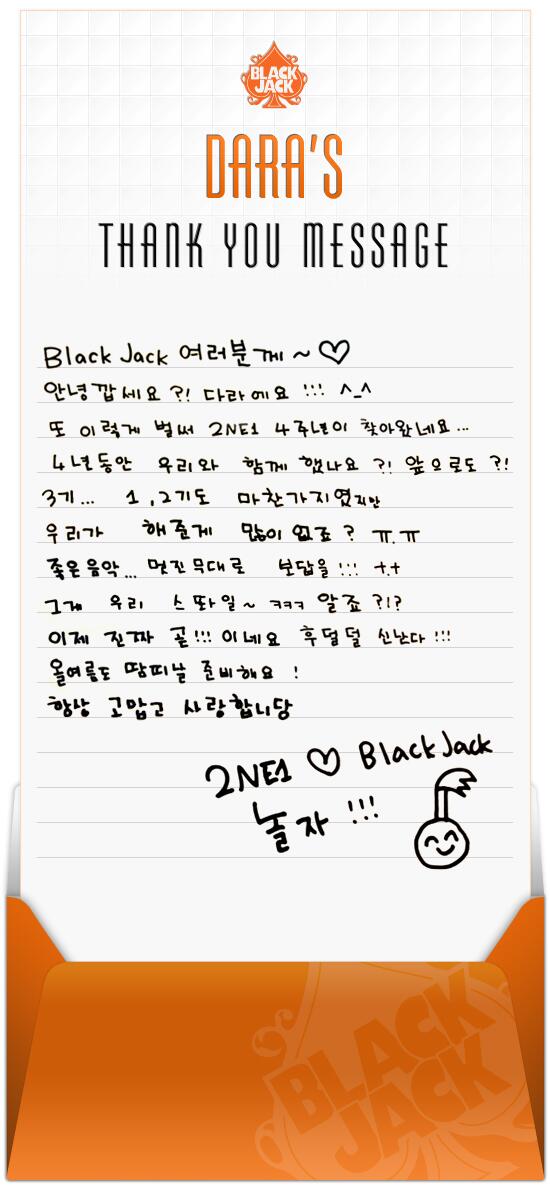 BLACK
JACK
DARA'S
THANK YOU MESSAGE
Black Jack 여러분께~♡
안녕깝세요?! 다라에요!!! ^_^
또 이렇게 벌써 2NE1 4주년이 찾아왔네요...
4년동안 우리와 함께 했나요?! 앞으로도?!
3기... 1,2기도 마찬가지였지만
우리가 해준게 많이 없죠? ㅠ.ㅠ
좋은음악... 멋진무대로 보답을!!! +.+
그게 우리 스똬일~ ㅋㅋㅋ 알죠?!?
이제 진짜 곧!!! 이네요 후덜덜 신난다!!!
올여름도 땀띠날 준비해요!
항상 고맙고 사랑합니당
2NE1 ♡ BlackJack
놀자!!!
BLACK
JACK